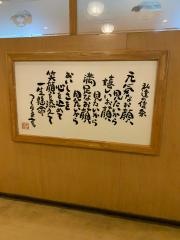 私達の信条
元気なお顔が
見たいから
嬉しいお顔が
見たいから
満足なお顔が
見たいから
おいしさと
心を込めて
笑顔を添えて
一生懸命
つくります。